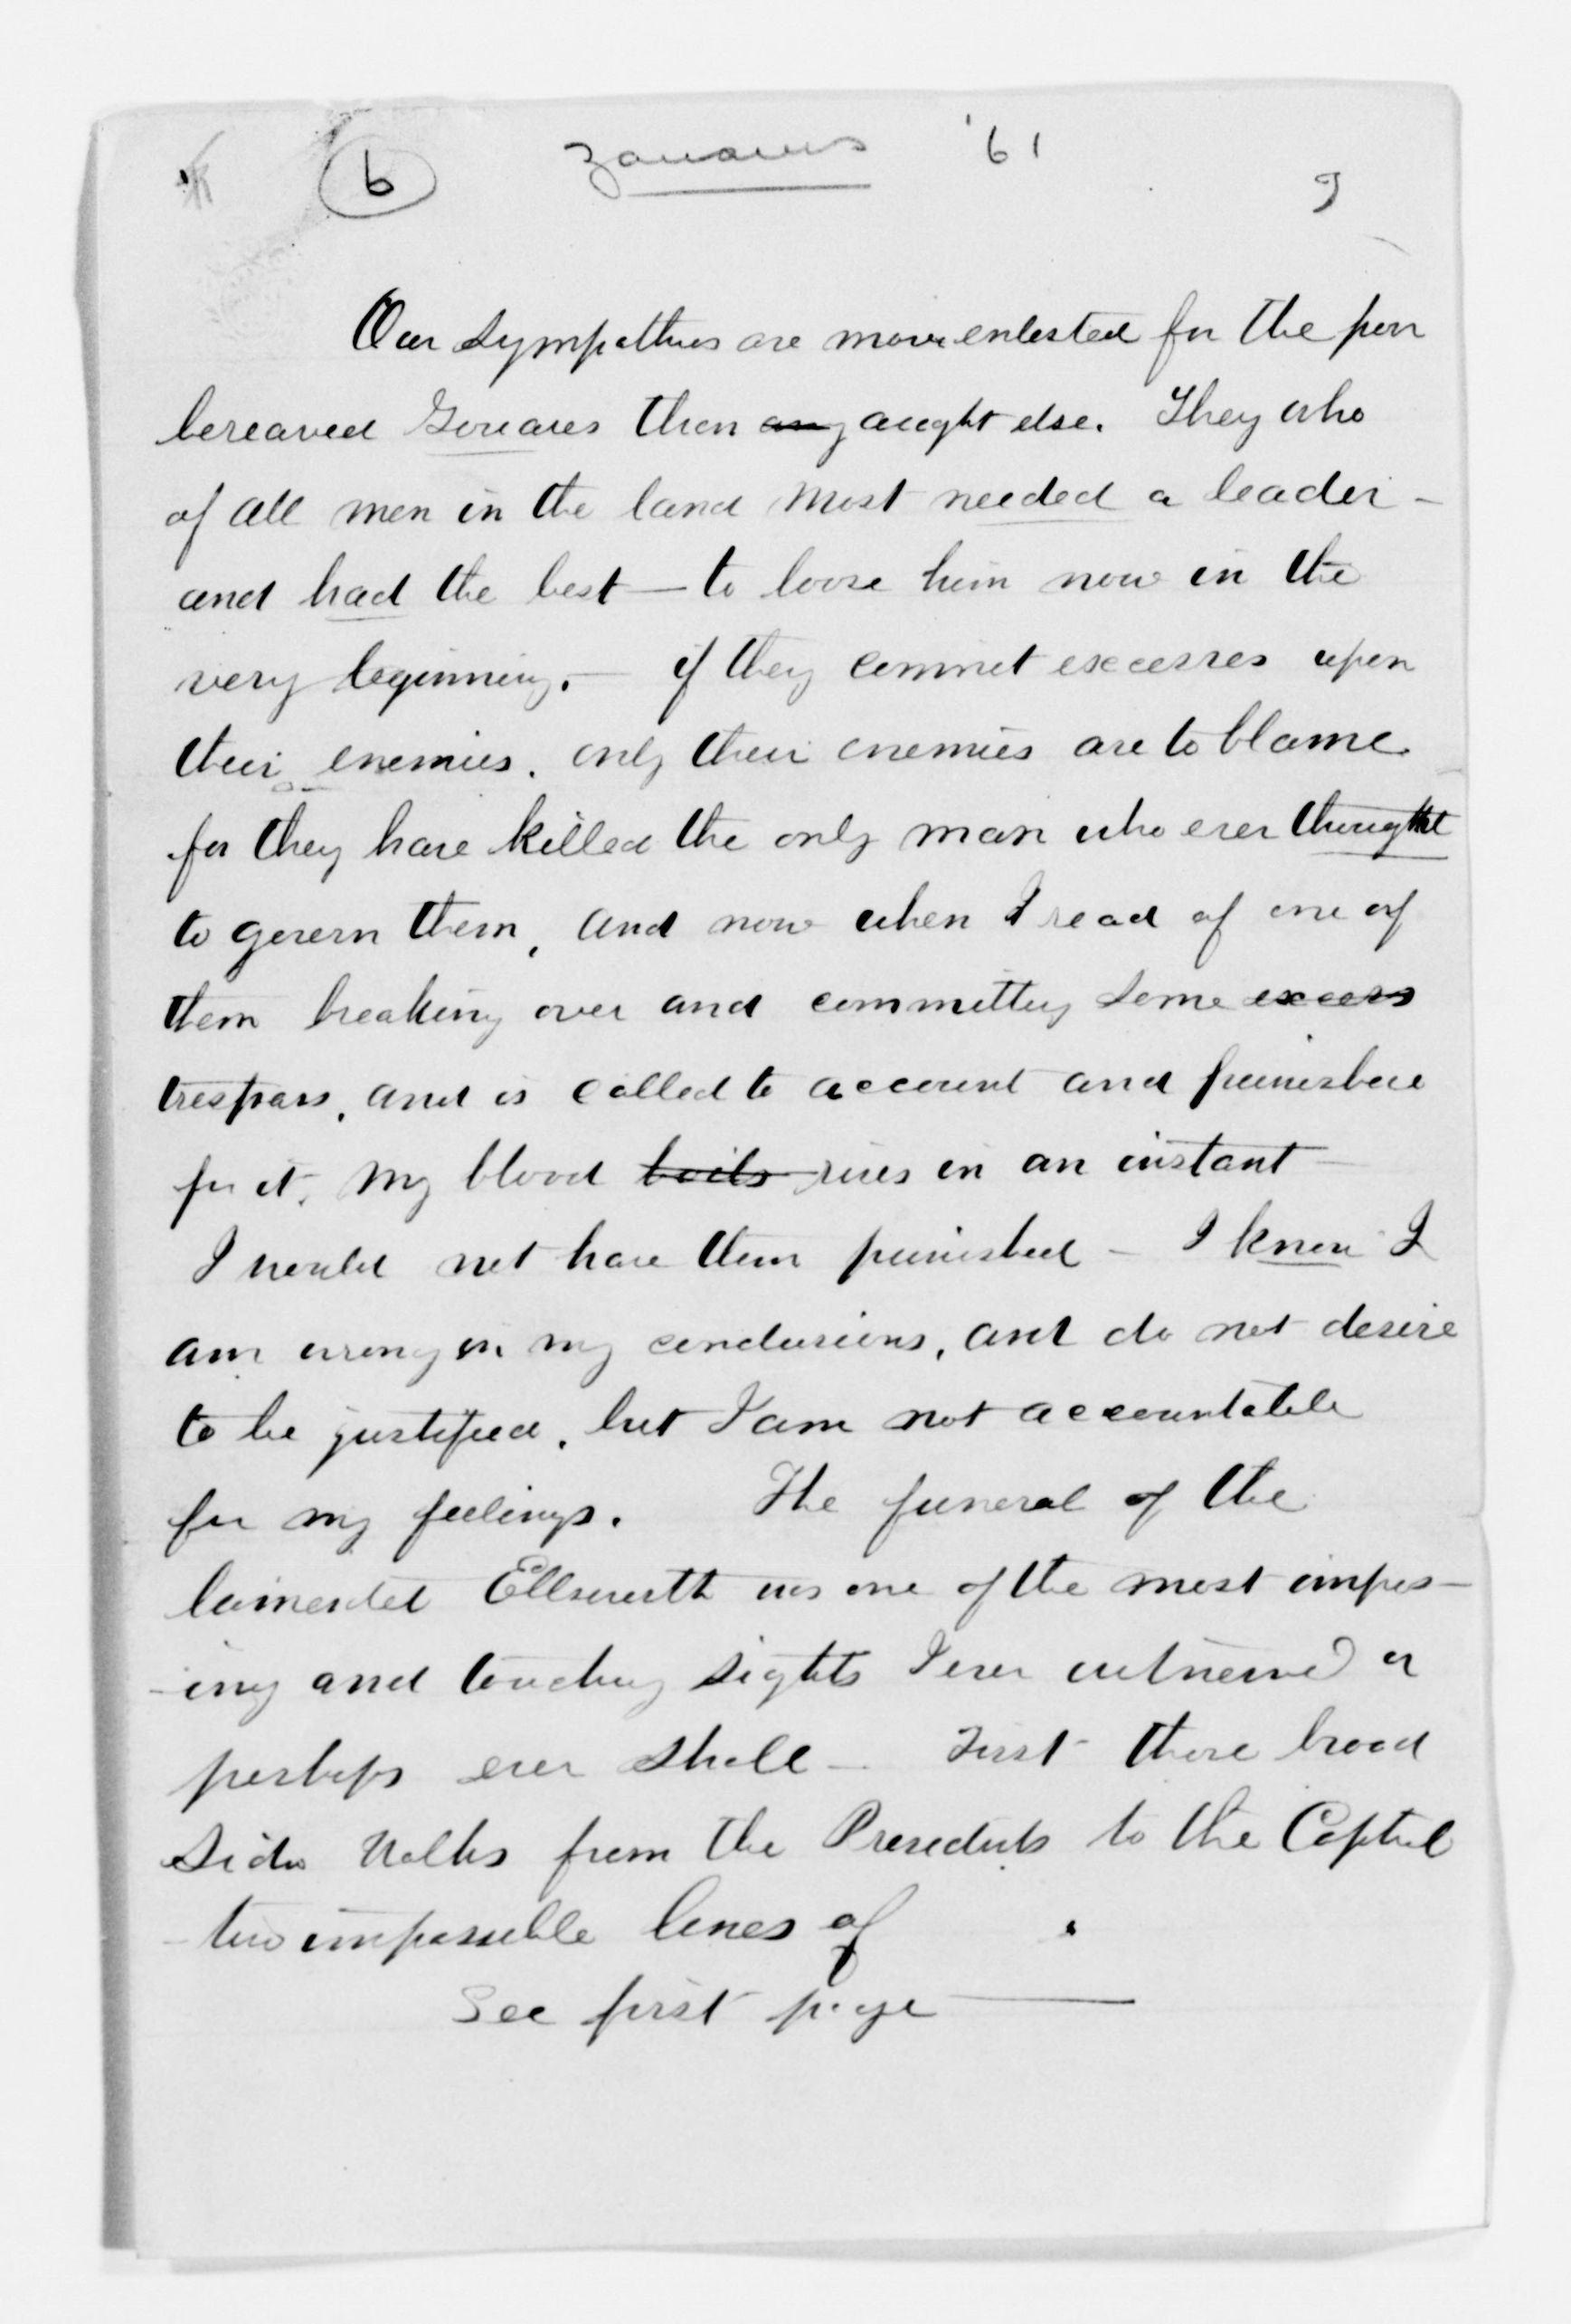 6 Zouaves '61
9
Our sympathies are more enlisted for the poor
bereaved Zouaves than any aught else. They who
of all men in the land most needed a leader -
and had the best — to loose him now in the
very beginning. — if they commit excesses upon
their enemies. only their enemies are to blame
for they have killed the only man who ever thought
to govern them, and now when I read of one of
them breaking over and committing some excess
trespass, and is called to account and punished
for it, my blood boils rises in an instant —
I would not have them punished — I know I
am wrong in my conclusions, and do not desire
to be justified, but I am not accountable
for my feelings. The funeral of the
lamented Ellsworth was one of the most impos-
-ing and touching sights I ever witnessed or
perhaps ever shall — First those broad
side walks from the Presedents to the Capitol
- two impassible lines of
See first page —